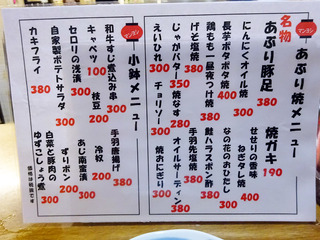 マンボウ
あぶり焼メニュー
名物
あぶり豚足 380
焼ガキ 190
にんにくオイル焼
せせりの香味ねぎタレ焼 500
長芋ポタポタ焼 400
なの花のおひたし 300
鶏もも一昼夜つけ焼 380
鮭ハラスポン酢 380
げそ塩焼 380
手羽先塩焼 380
じゃがバター 350
焼なす 280
オイルサーディン 380
えいひれ 300
チョリソー 300
焼おにぎり 200
マンボウ
小鉢メニュー
和牛すじ煮込み串 300
手羽唐揚げ 380
キャベツ 100
枝豆 200
冷奴 200
セロリの浅漬 300
あじ南蛮漬 300
自家製ポテトサラダ 300
ずりポン 200
カキフライ 380
白菜と豚肉のゆずこしょう煮 300